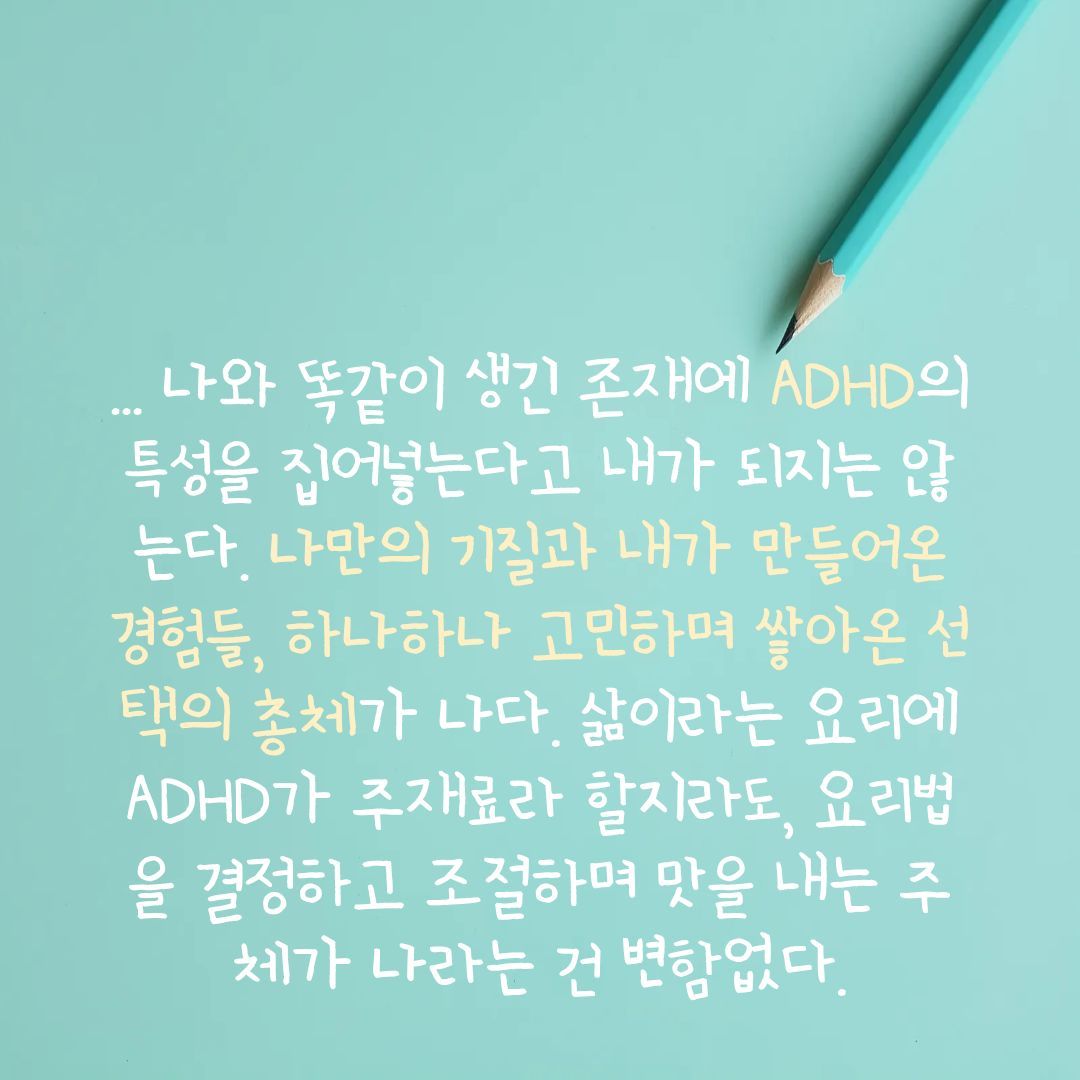 ... 나와 똑같이 생긴 존재에 ADHD의
특성을 집어넣는다고 내가 되지는 않
는다. 나만의 기질과 내가 만들어온
경험들, 하나하나 고민하며 쌓아온 선
택의 총체가 나다. 삶이라는 요리에
ADHD가 주재료라 할지라도, 요리법
을 결정하고 조절하며 맛을 내는 주
체가 나라는 건 변함없다.